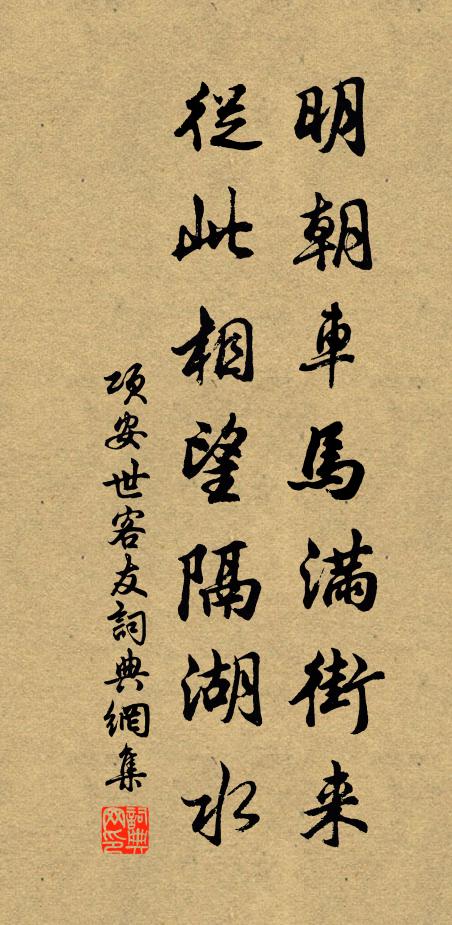 明朝車馬滿街来
從此相望隔湖水
項安世客友詞典網集
詞典网印